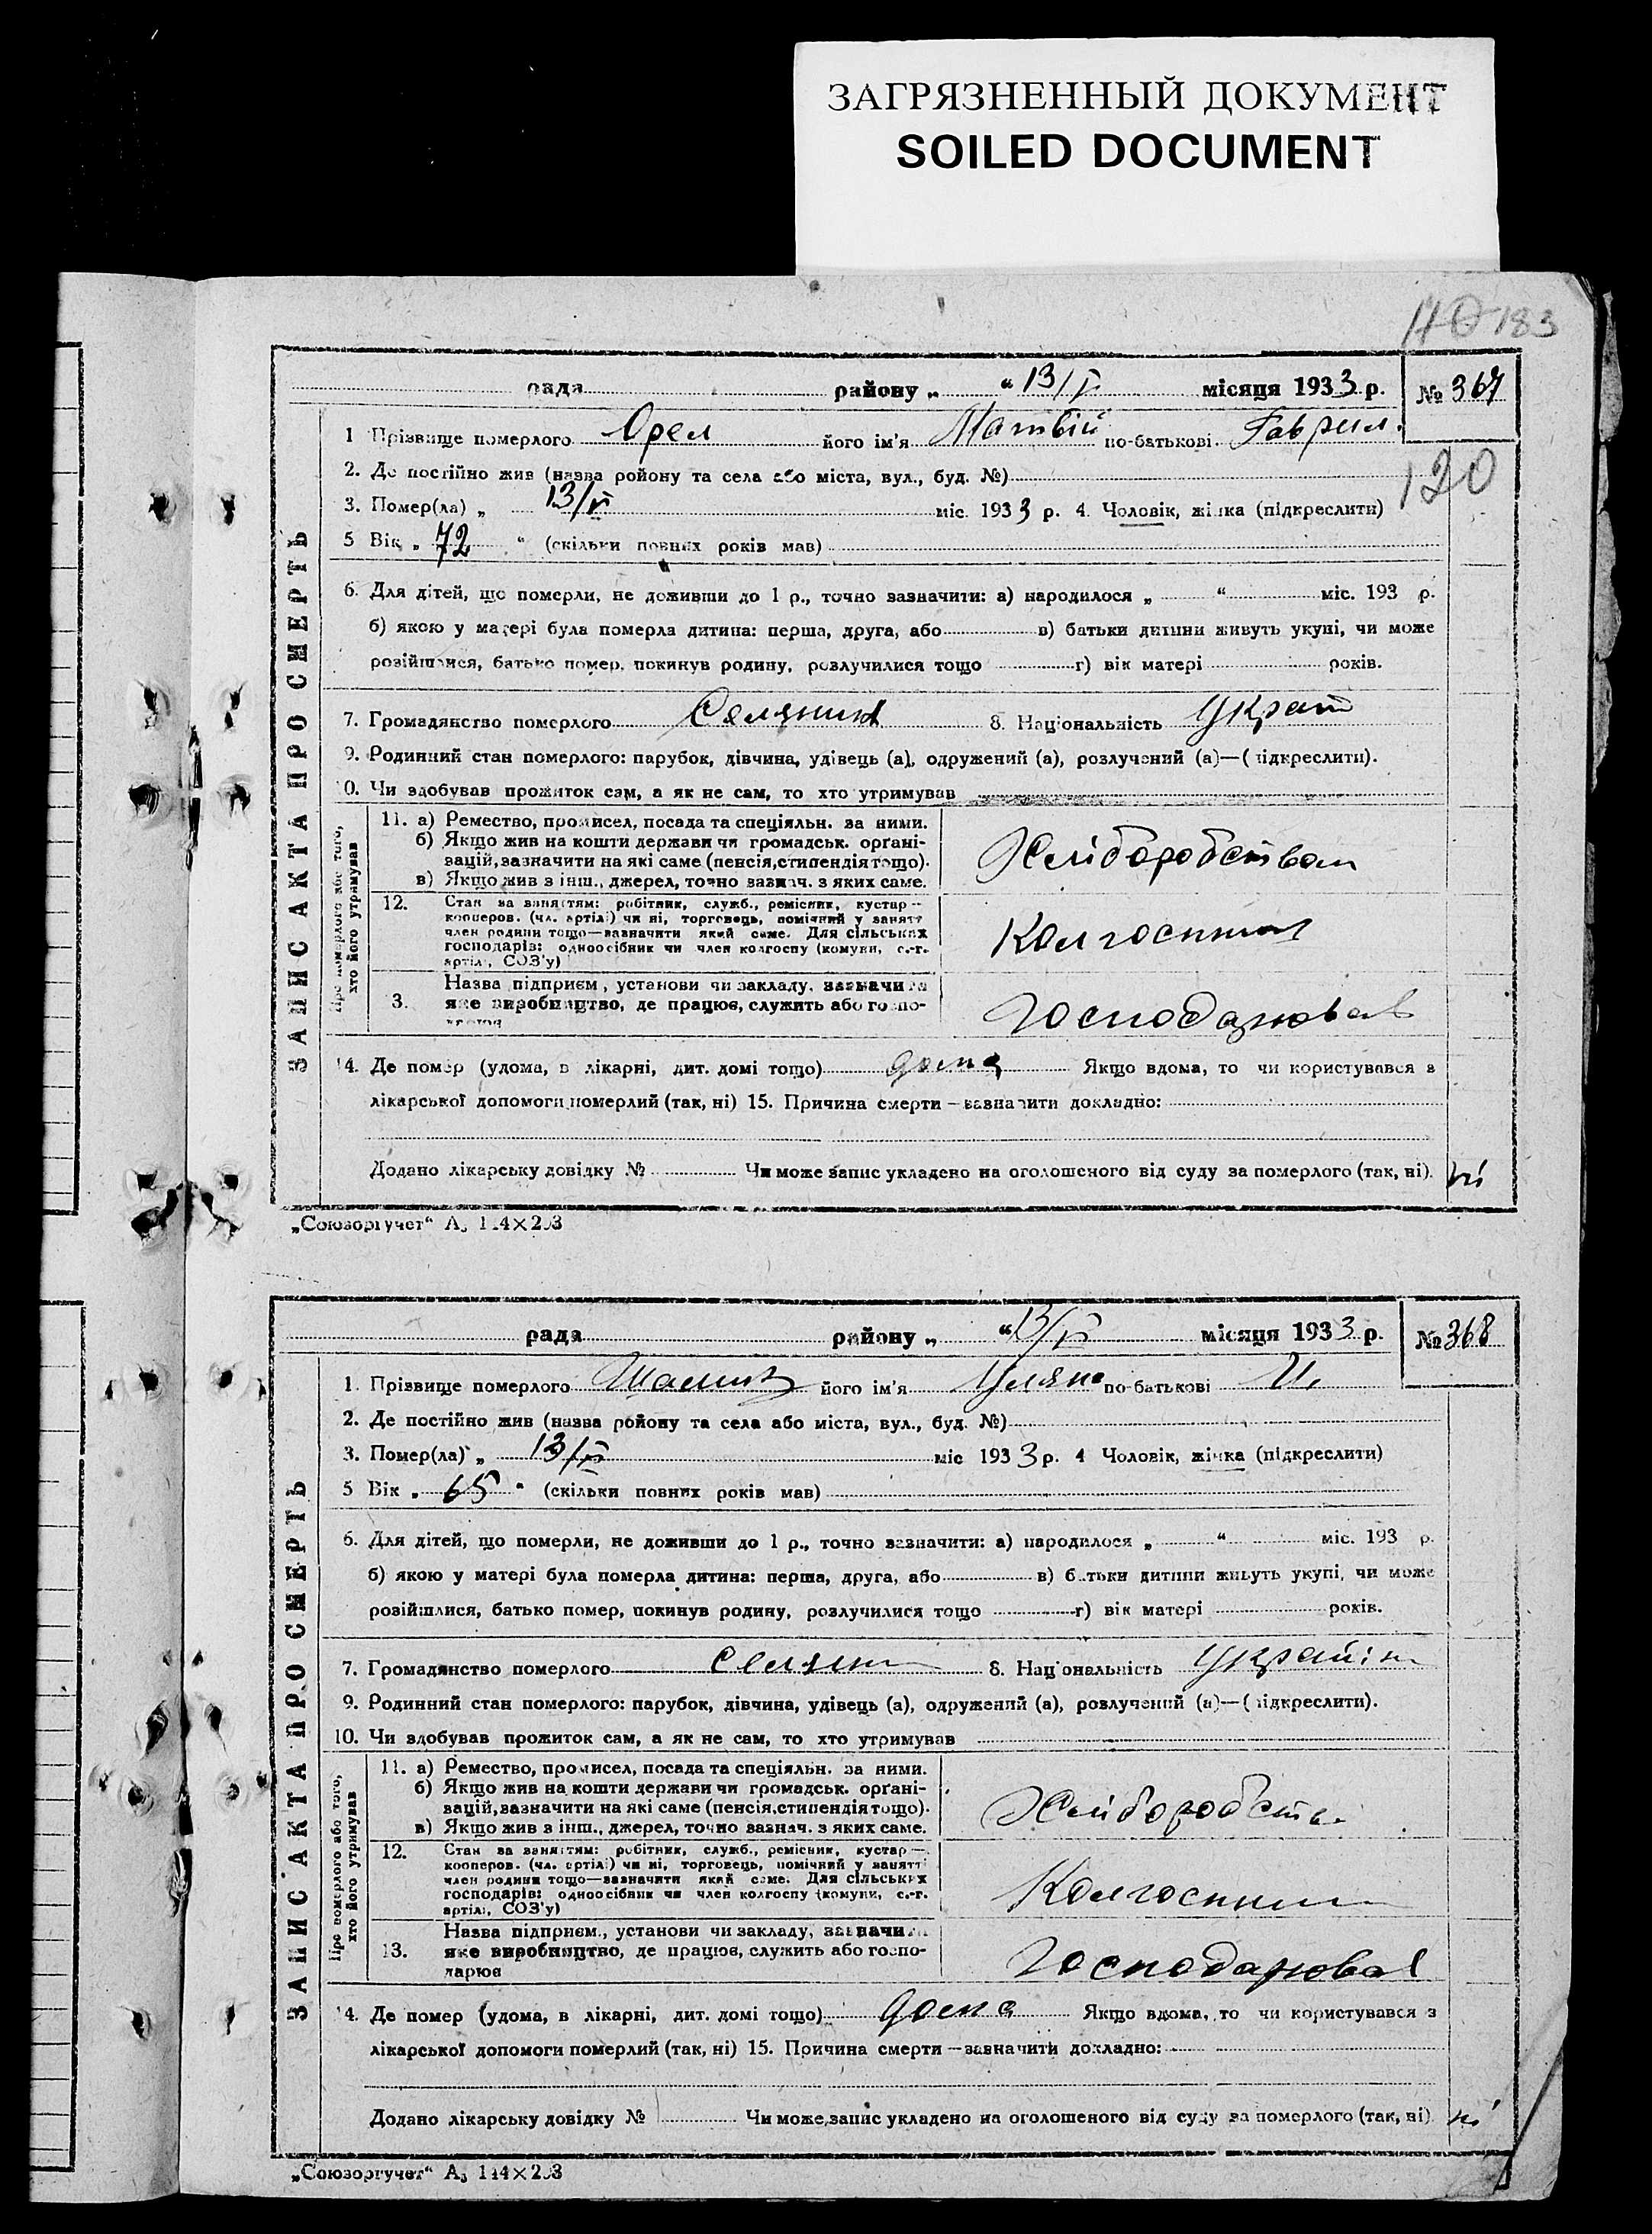 ЗАГРЯЗНЕННЫЙ ДОКУМЕНТ
SOILED DOCUMENT
183
рада району „ “ 13/V місяця 1933 р. № 367
1 Прізвище померлого Орел його ім'я Матвій по-батькові Гаврил.
120
2. Де постійно жив (назва ройону та села або міста, вул., буд. №)
3. Помер(ла) „ 13/V міс. 1933 р. 4. Чоловік, жінка (підкреслити)
5 Вік „ 72 “ (скільки повних років мав)
6. Для дітей, що померли, не доживши до 1 р., точно зазначити: а) народилося „ “ міс. 193 р.
б) якою у матері була померла дитина: перша, друга, або в) батьки дитини живуть укупі, чи може
розійшлися, батько помер, покинув родину, розлучилися тощо г) вік матері років.
7. Громадянство померлого Селянин 8. Національність Украї
9. Родинний стан померлого: парубок, дівчина, удівець (а), одружений (а), розлучений (а)—(підкреслити).
10. Чи здобував прожиток сам, а як не сам, то хто утримував
ЗАПИС АКТА ПРО СМЕРТЬ
Про померлого або того,
хто його утримував
11. а) Ремество, промисел, посада та спеціяльн. за ними.
б) Якщо жив на кошти держави чи громадськ. орґані-
зацій, зазначити на які саме (пенсія, стипендія тощо).
в) Якщо жив з інш., джерел, точно зазнач. з яких саме.
Хліборобством
12. Стан за заняттям: робітник, служб., ремісник, кустар—
кооперов. (чл. артілі) чи ні, торговець, помічний у занятті
член родини тощо—зазначити який саме. Для сільських
господарів: одноосібник чи член колгоспу (комуни, с.-г.
артілі, СОЗ'у)
Колгоспник
13. Назва підприєм., установи чи закладу, зазначити
яке виробництво, де працює, служить або госпо-
дарює
Господарював
14. Де помер (удома, в лікарні, дит. домі тощо) дома Якщо вдома, то чи користувався з
лікарської допомоги померлий (так, ні) 15. Причина смерти—зазначити докладно:
Додано лікарську довідку № Чи може запис укладено на оголошеного від суду за померлого (так, ні). ні
„Союзоргучет“ А5 144×203
рада району „ “ 13/V місяця 1933 р. № 368
1. Прізвище померлого його ім'я Уляна по-батькові И.
2. Де постійно жив (назва ройону та села або міста, вул., буд. №)
3. Помер(ла) „ 13/V міс 1933 р. 4 Чоловік, жінка (підкреслити)
5 Вік „ 65 “ (скільки повних років мав)
6. Для дітей, що померли, не доживши до 1 р., точно зазначити: а) народилося „ “ міс. 193 р.
б) якою у матері була померла дитина: перша, друга, або в) батьки дитини живуть укупі, чи може
розійшлися, батько помер, покинув родину, розлучилися тощо г) вік матері років.
7. Громадянство померлого селянин 8. Національність Україн
9. Родинний стан померлого: парубок, дівчина, удівець (а), одружений (а), розлучений (а)—(підкреслити).
10. Чи здобував прожиток сам, а як не сам, то хто утримував
ЗАПИС АКТА ПРО СМЕРТЬ
Про померлого або того,
хто його утримував
11. а) Ремество, промисел, посада та спеціяльн. за ними.
б) Якщо жив на кошти держави чи громадськ. орґані-
зацій, зазначити на які саме (пенсія, стипендія тощо).
в) Якщо жив з інш., джерел, точно зазнач. з яких саме.
Хліборобств
12. Стан за заняттям: робітник, служб., ремісник, кустар—
кооперов. (чл. артілі) чи ні, торговець, помічний у занятті
член родини тощо—зазначити який саме. Для сільських
господарів: одноосібник чи член колгоспу (комуни, с.-г.
артілі, СОЗ'у)
Колгоспник
13. Назва підприєм., установи чи закладу, зазначити
яке виробництво, де працює, служить або госпо-
дарює
Господарював
14. Де помер (удома, в лікарні, дит. домі тощо) дома Якщо вдома, то чи користувався з
лікарської допомоги померлий (так, ні) 15. Причина смерти—зазначити докладно:
Додано лікарську довідку № Чи може запис укладено на оголошеного від суду за померлого (так, ні) ні
„Союзоргучет“ А5 144×203